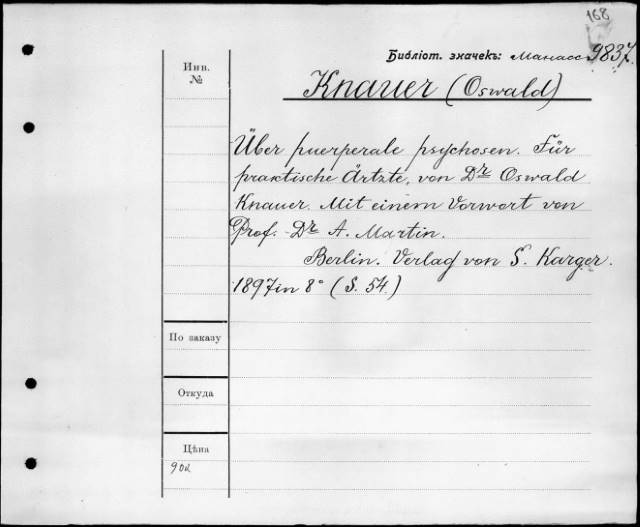 168
Библіот. значекъ: Манасс 9837.
Инв.
№
Knauer (Oswald)
Über puerperale psychosen. Für
praktische Ärtzte, von Dr Oswald
Knauer. Mit einem Vorwort von
Prof. Dr A. Martin.
Berlin. Verlag von S. Karger.
1897 in 8° (S. 54.)
По заказу
Откуда
Цѣна